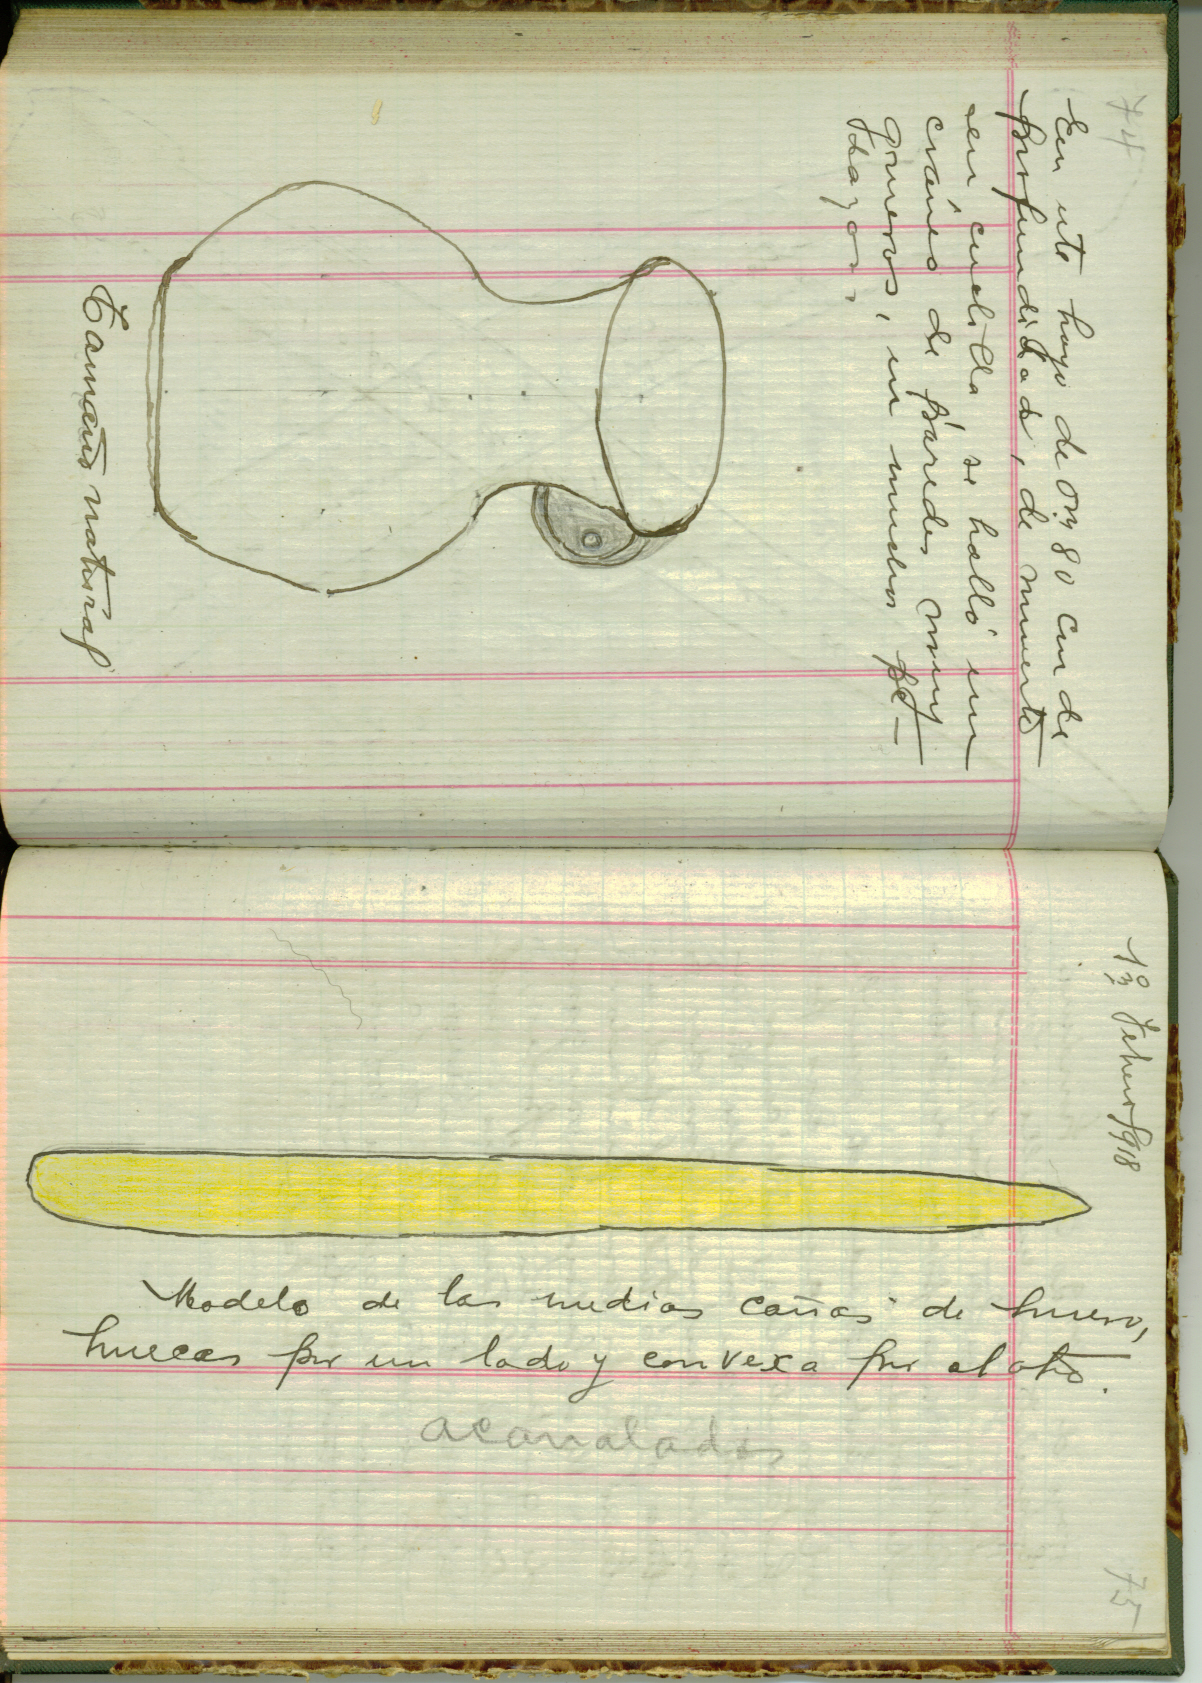 74
En este hoyo de 0m,80 cm de
profundidad, de muerto
en cuclilla se halló un
cráneo de paredes muy
gruesas, en muchos pe-
dazos.
Tamaño natural
1º, Febrero/918
Modelo de las medias cañas de hueso,
huecas por un lado y convexa por el otro.
acanalados
75